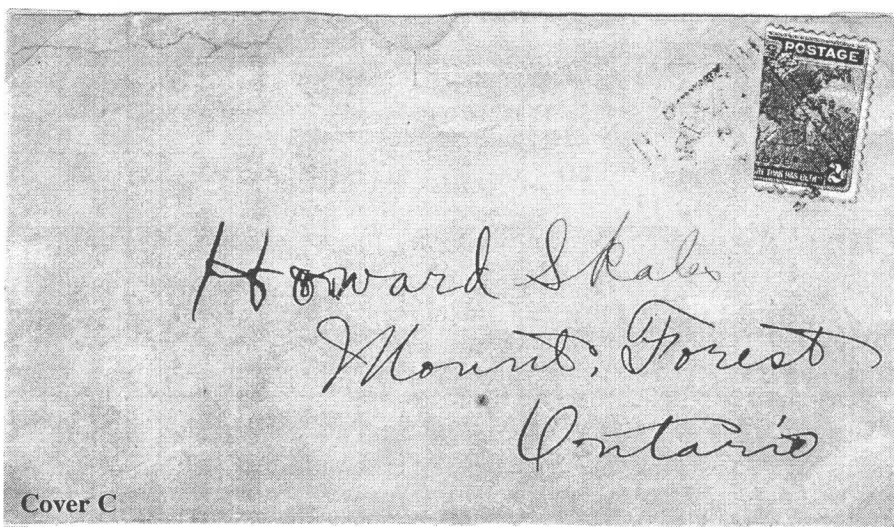 POSTAGE
2
Howard Skales
Mount, Forest
Ontario
Cover C